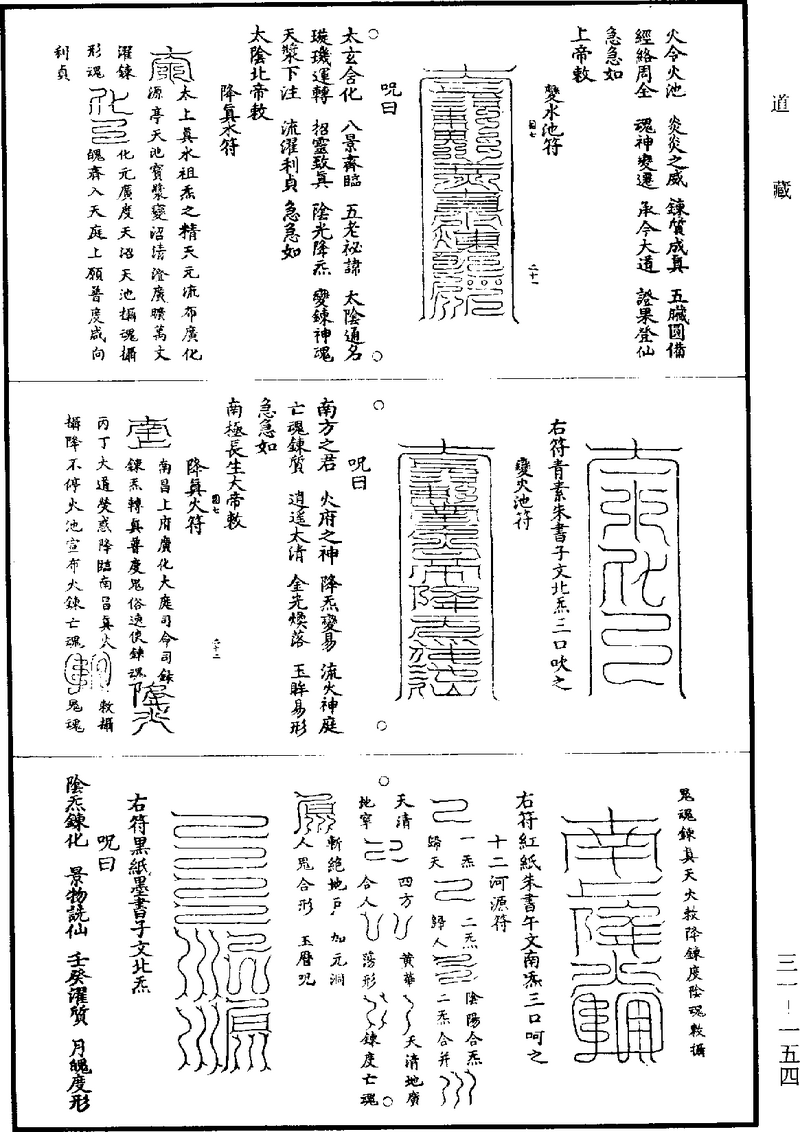 道藏
火令火池　炎炎之威　錬質成真　五臟圓備
經絡周全　魂神變遷　承今大道　證果登仙
急急如
上帝敕
變水池符
咒曰
太玄含化　八景齊臨　五老祕諱　太陰通名
璇璣運轉　招靈致真　陰光降炁　變錬神魂
天漿下注　流濯利貞　急急如
太陰北帝敕
降真水符
太上真水祖炁之精天元流布廣化
源亭天池寶漿變沼清澄廣曠萬文
化元廣度天沼天池攝魂攝
濯錬形魂
魄齊入天庭上願普度咸向
利貞
右符青素朱書子文北炁三口吹之
變火池符
咒曰
南方之君　火府之神　降炁變易　流火神庭
亡魂錬質　逍遥太清　金光煥落　玉眸易形
急急如
南極長生大帝敕
降真火符
南昌上府廣化大庭司令司錬
錬炁轉真普度鬼俗速使錬魂
丙丁大道熒惑降臨南昌真火
敕攝
攝降不停火池宣布火錬亡魂
鬼魂
鬼魂錬真天火敕降錬度陰魂敕攝
右符紅紙朱書午文南炁三口呵之
十二河源符
一炁　二炁　陰陽合炁
歸天　歸人　二炁合并
天清　四方　黄華　天清地廣
地寧　合人　蕩形　錬度亡魂
斬絶地户　加元洞
人鬼合形　玉曆咒
右符黑紙墨書子文北炁
咒曰
陰炁錬化　景物詵仙　壬癸濯質　月魄度形
三一—一五四